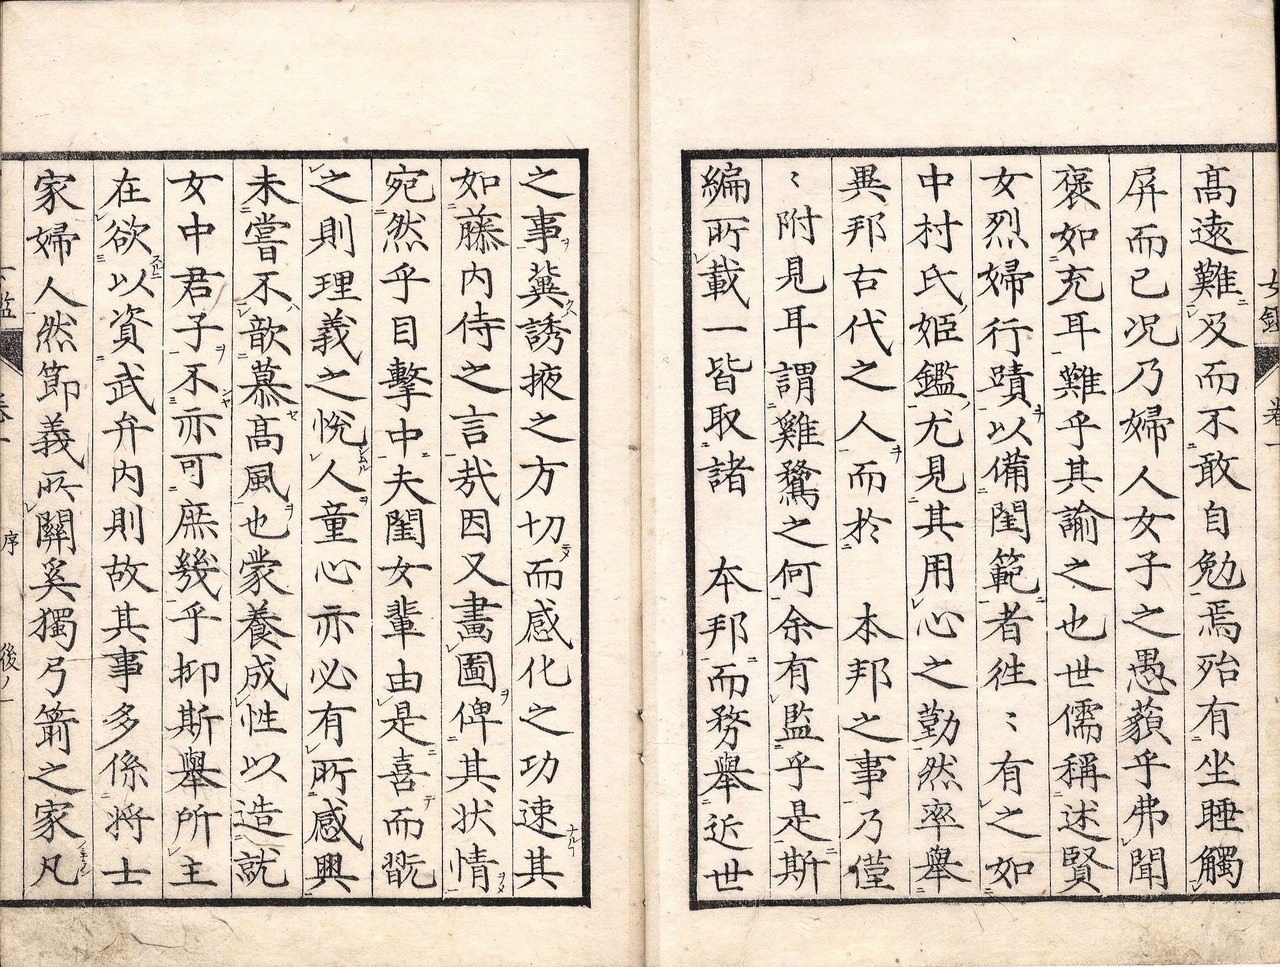 高遠難及而不敢自勉焉殆有坐睡觸
屏而已況乃婦人女子之愚蘋乎弗聞
褒如充耳難乎其諭之也世儒稱述賢
女烈婦行蹟以備閨範者徃〻有之如
中村氏姫鑑尤見其用心之勤然率舉
異邦古代之人而於　本邦之事乃僅
〻附見耳謂雞鶩之何余有監乎是斯
編所載一皆取諸　本邦而務舉近世
之事冀誘掖之方切而感化之功速其
如藤内侍之言哉因又畫圖俾其状情
宛然乎目擊中夫閨女輩由是喜而翫
之則理義之悅人童心亦必有所感興
未嘗不歆慕高風也蒙養成性以造就
女中君子不亦可庶幾乎抑斯舉所主
在欲以資武弁内則故其事多係将士
家婦人然節義所關奚獨弓箭之家凡
女鑑
卷一
序
後ノ一